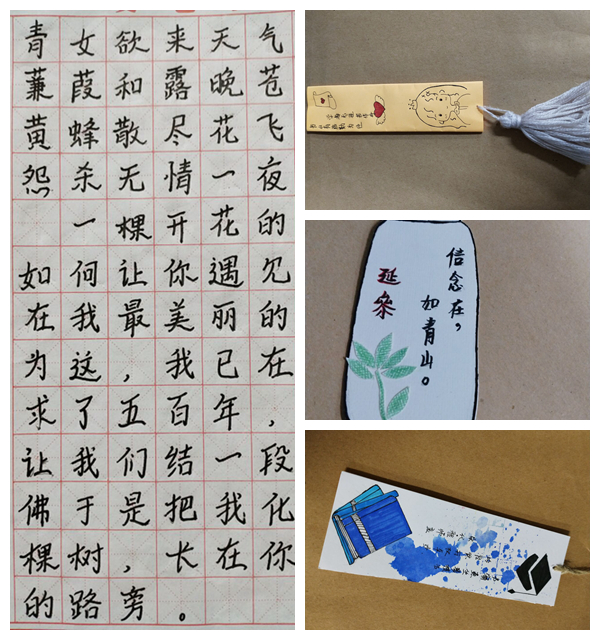 青女欲来天气
蒹葭和露晚苍
黄蜂散尽花飞
怨杀无情一夜
一棵开花的
如何让你遇见
在我最美丽的
为这，我已在
求了五百年，
让我们结一段
佛于是把我化
棵树，长在你
的路旁。
书山有路勤为径
学海无涯苦作舟
信念在，
如青山。